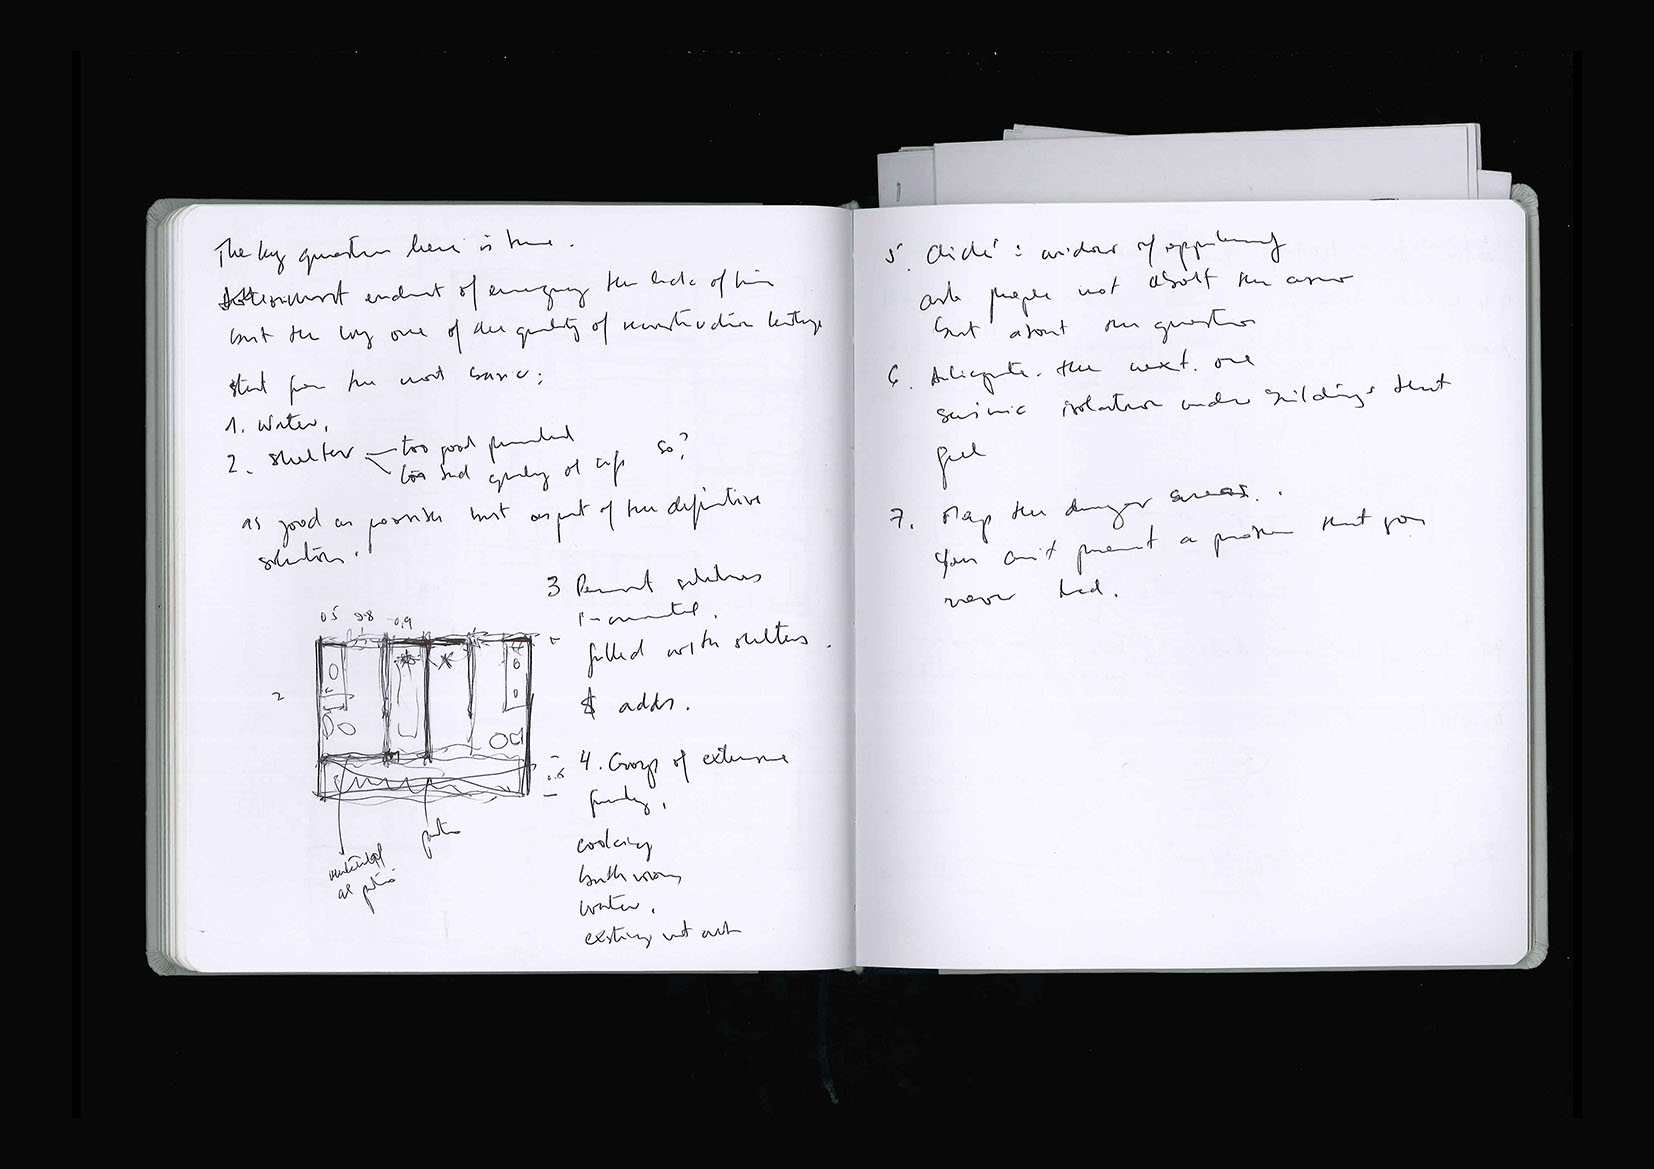 The key question here is time.
of emergency the lack of time
but the key one of the quality of reconstruction
start from the most basic:
1. Water.
2. shelter too good permanent
too bad quality of so?
as good as possible but as part of the definitive
solution.
0.5 0.8 0.9
2
3 Permanent solutions
incremental.
filled with shelters.
$ adds.
4. Group of extensive
family.
cooking
bathrooms
water.
existing not
patio
as patio
5. Cliché: window of opportunity
ask people not about the answer
but about the question
6. Anticipate the next one
seismic isolation under buildings that
7. Map the danger areas.
You can't prevent a problem that you
never had.